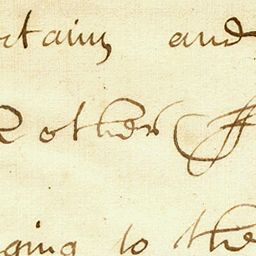 rtaing and
Rother
ging to the